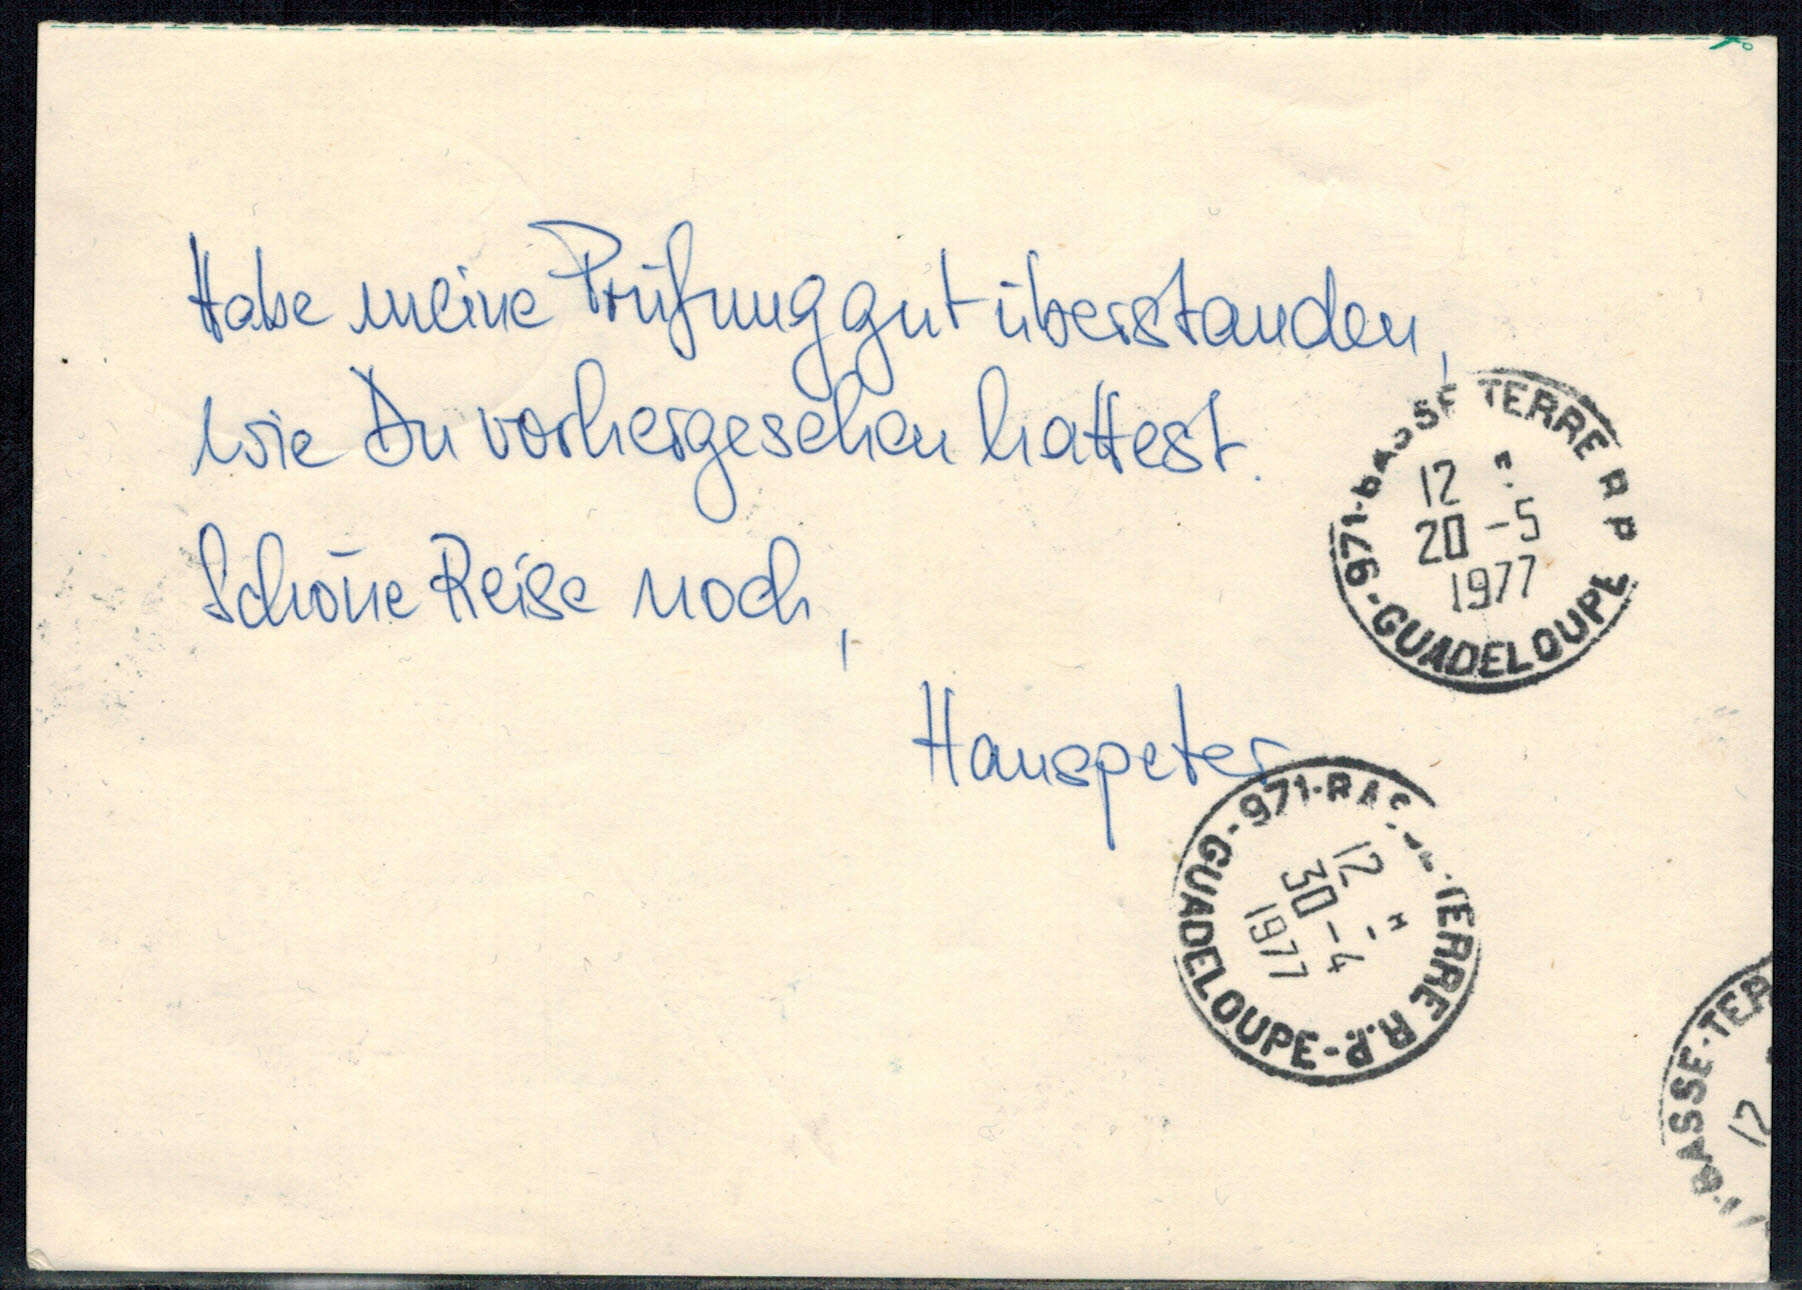 Habe meine Prüfung gut überstanden,
wie Du vorhergesehen hattest.
Schöne Reise noch,
Hanspeter
971-BASSE TERRE R P
12 H
20 -5
1977
-GUADELOUPE
971-BASSE-TERRE R.P.
12 H
30 -4
1977
GUADELOUPE-
BASSE-TER
12